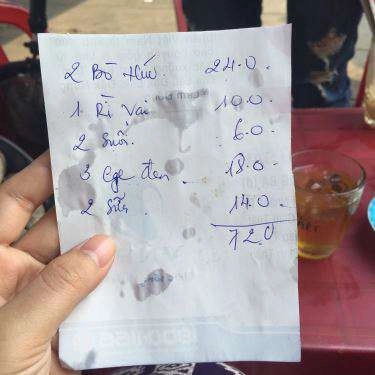 2 Bò Húc. 240.
1 Rì Vại 100.
2 Suối. 60.
3 Cafe đen. 180.
2 Sữa. 140.
720